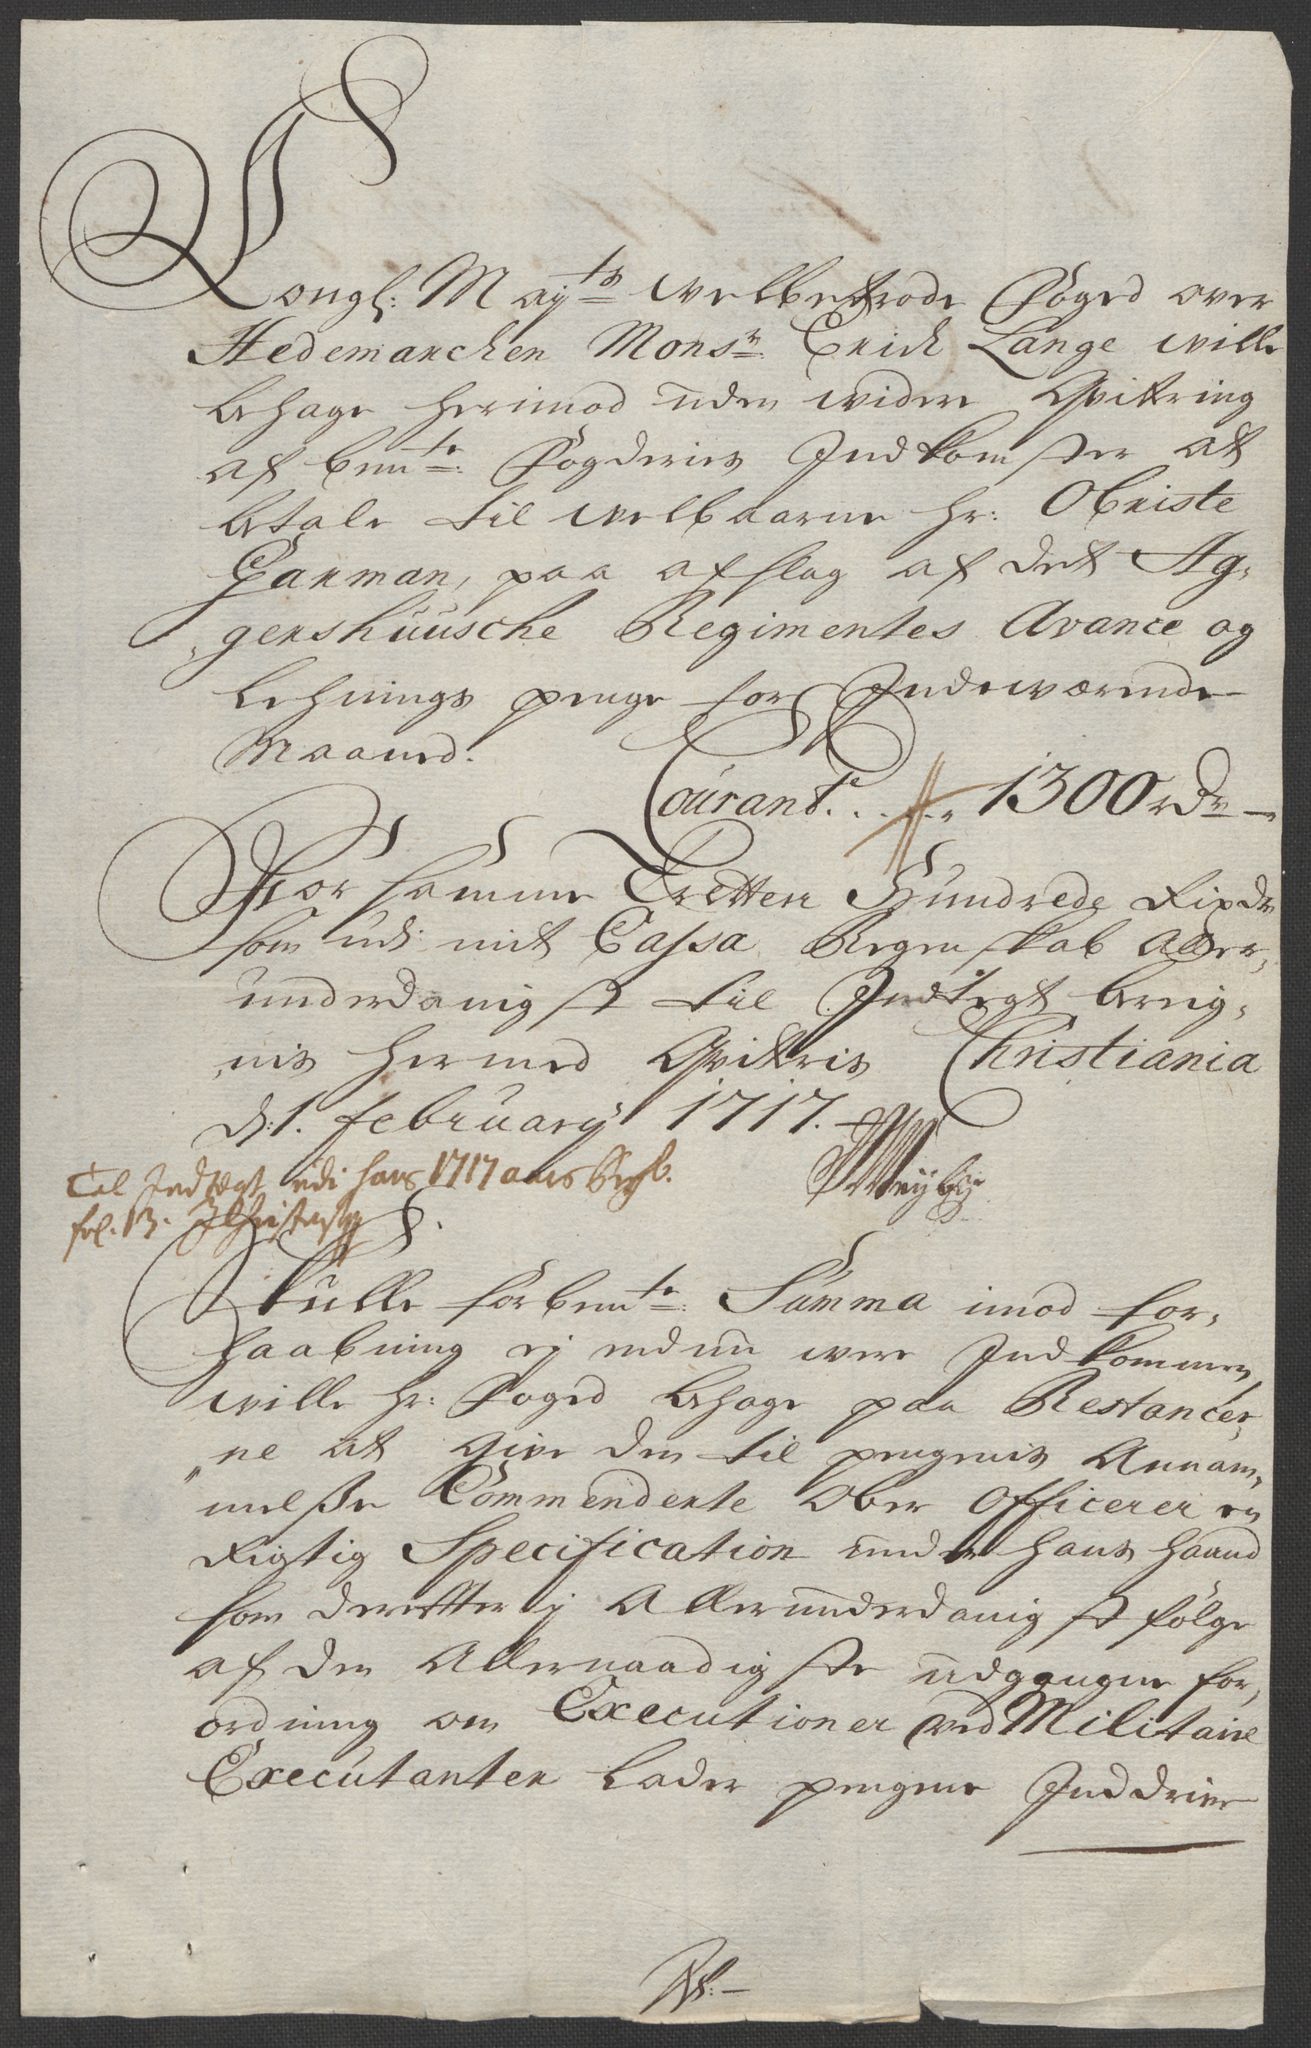 Kongl: Mayts welbetrode Foged over
Hedemarchen Monsr: Erich Lange wille
behage herimod uden widere Qvittering
af bemte: Fogderies Indkomster at
betale til welbaarne Hr: Obriste
Garman, paa afslag af det Ag,
,gershuusche Regimentes Avance og
Lehnings penge for Indewærende
Maaned.
Courant. . . . 1300 rdr —
For samme Tretten Hundrede Rixdr
som udi mit Cassa Regenskab aller,
underdanigst til Indtegt bereg,
,nis hermed Qvitteris Christiania
d: 1. February 1717.
Til Indtegt udi hans 1717 aars
fol. 13.
Skulle forbemte: Summa imod for,
haabning ej endnu were Indkommen,
wille Hr: Foged behage paa Restancer,
,,ne at give den til pengenis Annam,
melße Commenderte Ober Officerer en
Rigtig Specification under hans haand
som derefter j Allerunderdanigst følge
af den Allernaadigste udgangne for,
ordning om Executioner ved Militaire
Executanter Lader pengene Inddrive